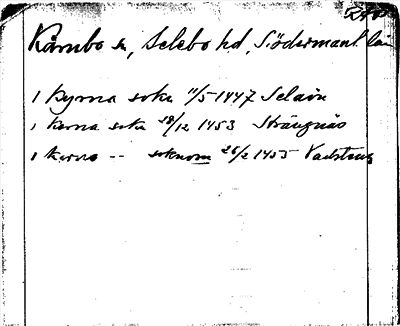 Kärnbo sn, Selebo hd, Södermanl. län
i Kyrna sokn 11/5 1447 Selaön
i Kerna sokn 28/12 1453 Strängnäs
i Kerno -- soknom 26/2 1455 Vadstena